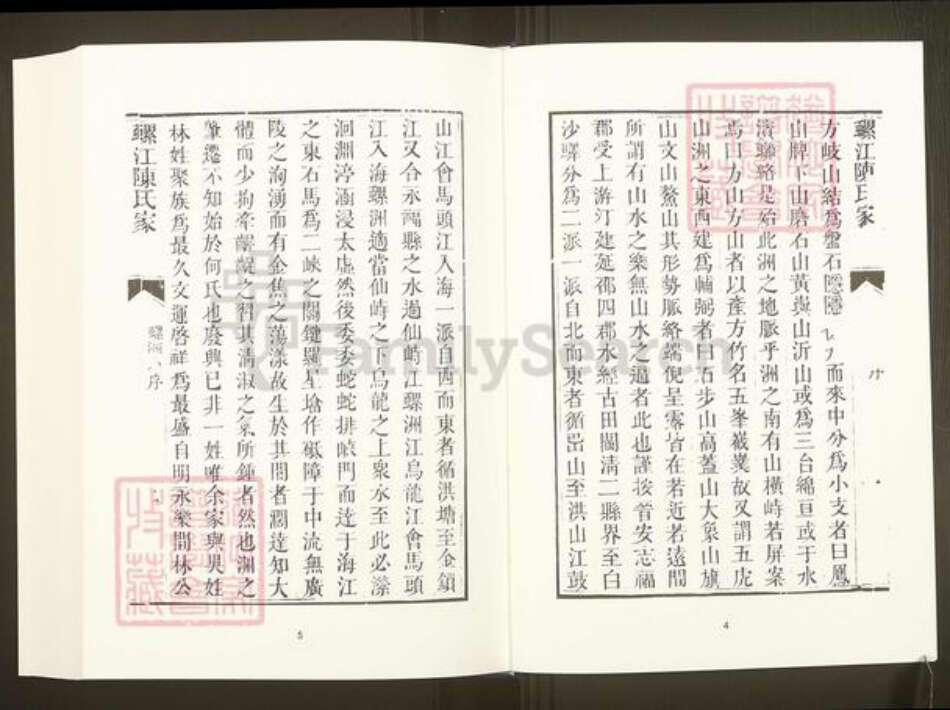 螺江陳氏家
序
方岐山結爲盤石隱隱 而來中分爲小支者曰鳳
山牌下山磨石山黃與山沂山或爲三台綿亘或于水
濟聯絡是始此洲之地脈乎洲之南有山橫峙若屏案
焉曰方山方山者以產方竹名五峯嶻嶪故又謂五虎
山洲之東西建爲輔弼者曰百步山高蓋山大象山旗
山文山鰲山其形勢脈絡端倪呈露皆在若近若遠間
所謂有山水之樂無山水之過者此也謹按晉安志福
郡受上游汀建延邵四郡水經古田閩清二縣界至白
沙驛分爲二派一派自北而東者循岊山至洪山江鼓
4
山江會馬頭江入海一派自西而東者循洪塘至金鎖
江又合永福縣之水過仙崎江螺洲江烏龍江會馬頭
江入海螺洲適當仙崎之下烏龍之上衆水至此必瀠
洄淵渟涵浸太虛然後委委蛇蛇排闥門而達于海江
之東石馬爲二峽之關鍵羅星塔作砥障于中流無廣
陵之洶湧而有金焦之蕩漾故生於其間者濶達知大
體而少拘牽齷齪之習其清淑之氣所鍾者然也淵之
肇遷不知始於何氏也廢興已非一姓唯余家與吳姓
林姓聚族爲最久文運啓祥爲最盛自明永樂間林公
螺洲 序
螺江陳氏家
5
FamilySearch